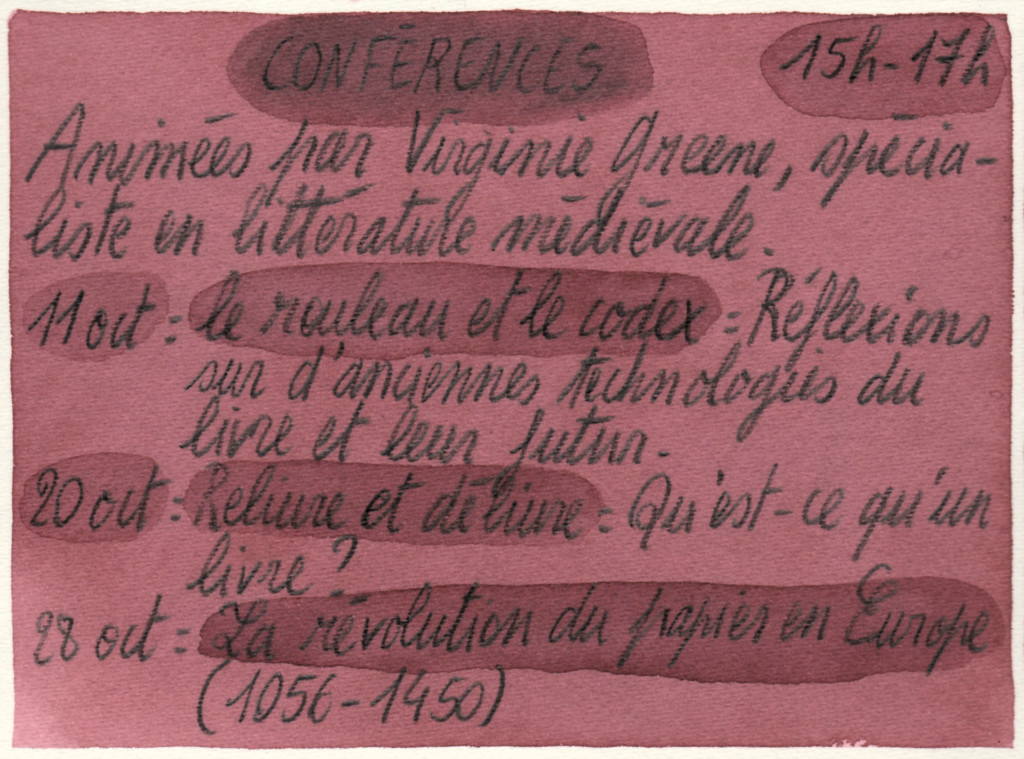 CONFÉRENCES 15h-17h
Animées par Virginie Greene, spécia-
liste en littérature médiévale.
11 oct : le rouleau et le codex : Réflexions
sur d'anciennes technologies du
livre et leur futur.
20 oct : Reliure et déliure : Qu'est-ce qu'un
livre ?
28 oct : La révolution du papier en Europe
(1056-1450)